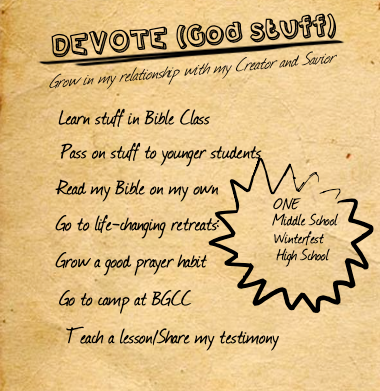 DEVOTE (God stuff)
Grow in my relationship with my Creator and Savior
Learn stuff in Bible Class
Pass on stuff to younger students
Read my Bible on my own
Go to life-changing retreats
Grow a good prayer habit
Go to camp at BGCC
Teach a lesson/Share my testimony
ONE
Middle School
Winterfest
High School